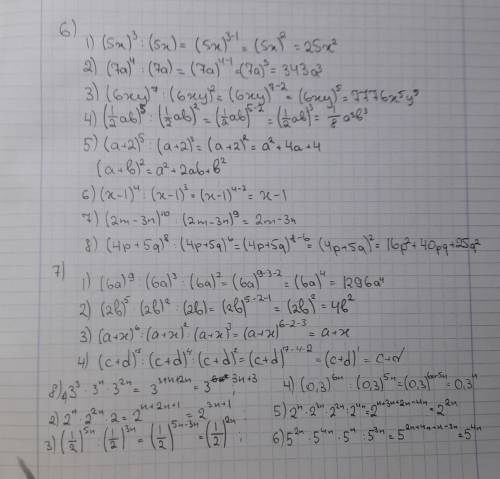 6)
1) (5x)³ : (5x) = (5x)³⁻¹ = (5x)² = 25x²
2) (7a)⁴ : (7a) = (7a)⁴⁻¹ = (7a)³ = 343a³
3) (6xy)⁷ : (6xy)² = (6xy)⁷⁻² = (6xy)⁵ = 7776x⁵y⁵
4) (½ab)⁵ : (½ab)² = (½ab)⁵⁻² = (½ab)³ = ⅛a³b³
5) (a+2)⁵ : (a+2)³ = (a+2)² = a² + 4a + 4
(a+b)² = a² + 2ab + b²
6) (x-1)⁴ : (x-1)³ = (x-1)⁴⁻³ = x-1
7) (2m-3n)¹⁰ : (2m-3n)⁹ = 2m-3n
8) (4p+5q)⁸ : (4p+5q)⁶ = (4p+5q)⁸⁻⁶ = (4p+5q)² = 16p² + 40pq + 25q²
7)
1) (6a)⁹ : (6a)³ : (6a)² = (6a)⁹⁻³⁻² = (6a)⁴ = 1296a⁴
2) (2b)⁵ : (2b)² : (2b) = (2b)⁵⁻²⁻¹ = (2b)² = 4b²
3) (a+x)⁶ : (a+x)² : (a+x)³ = (a+x)⁶⁻²⁻³ = a+x
4) (c+d)⁷ : (c+d)⁴ : (c+d)² = (c+d)⁷⁻⁴⁻² = (c+d)¹ = c+d
8) 1) 3³ · 3ⁿ · 3²ⁿ = 3³⁺ⁿ⁺²ⁿ = 3³ⁿ⁺³ 4) (0,3)⁶ⁿ : (0,3)⁵ⁿ = (0,3)⁶ⁿ⁻⁵ⁿ = 0,3ⁿ
2) 2ⁿ · 2²ⁿ · 2 = 2ⁿ⁺²ⁿ⁺¹ = 2³ⁿ⁺¹ ; 5) 2ⁿ · 2³ⁿ · 2²ⁿ : 2⁴ⁿ = 2ⁿ⁺³ⁿ⁺²ⁿ⁻⁴ⁿ = 2²ⁿ
3) (½)⁵ⁿ : (½)³ⁿ = (½)⁵ⁿ⁻³ⁿ = (½)²ⁿ ; 6) 5²ⁿ · 5⁴ⁿ · 5ⁿ : 5³ⁿ = 5²ⁿ⁺⁴ⁿ⁺ⁿ⁻³ⁿ = 5⁴ⁿ